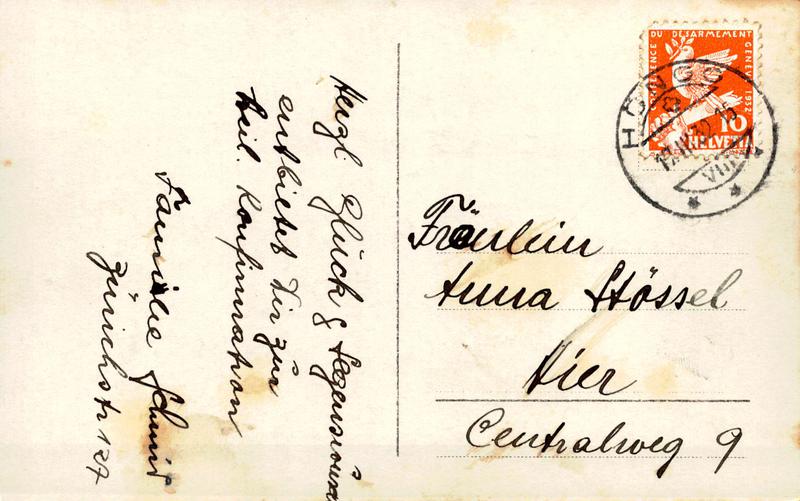 Herzl. Glück & Segenswunsch
entbietet Dir zur
heil. Konfirmation
Familie Schmit
Zürichstr 127
CONFERENCE DU DESARMEMENT GENEVE 1932
10
HELVETIA
HÖNGG
32.15
VIII
Fräulein
Anna Stössel
Hier
Centralweg 9